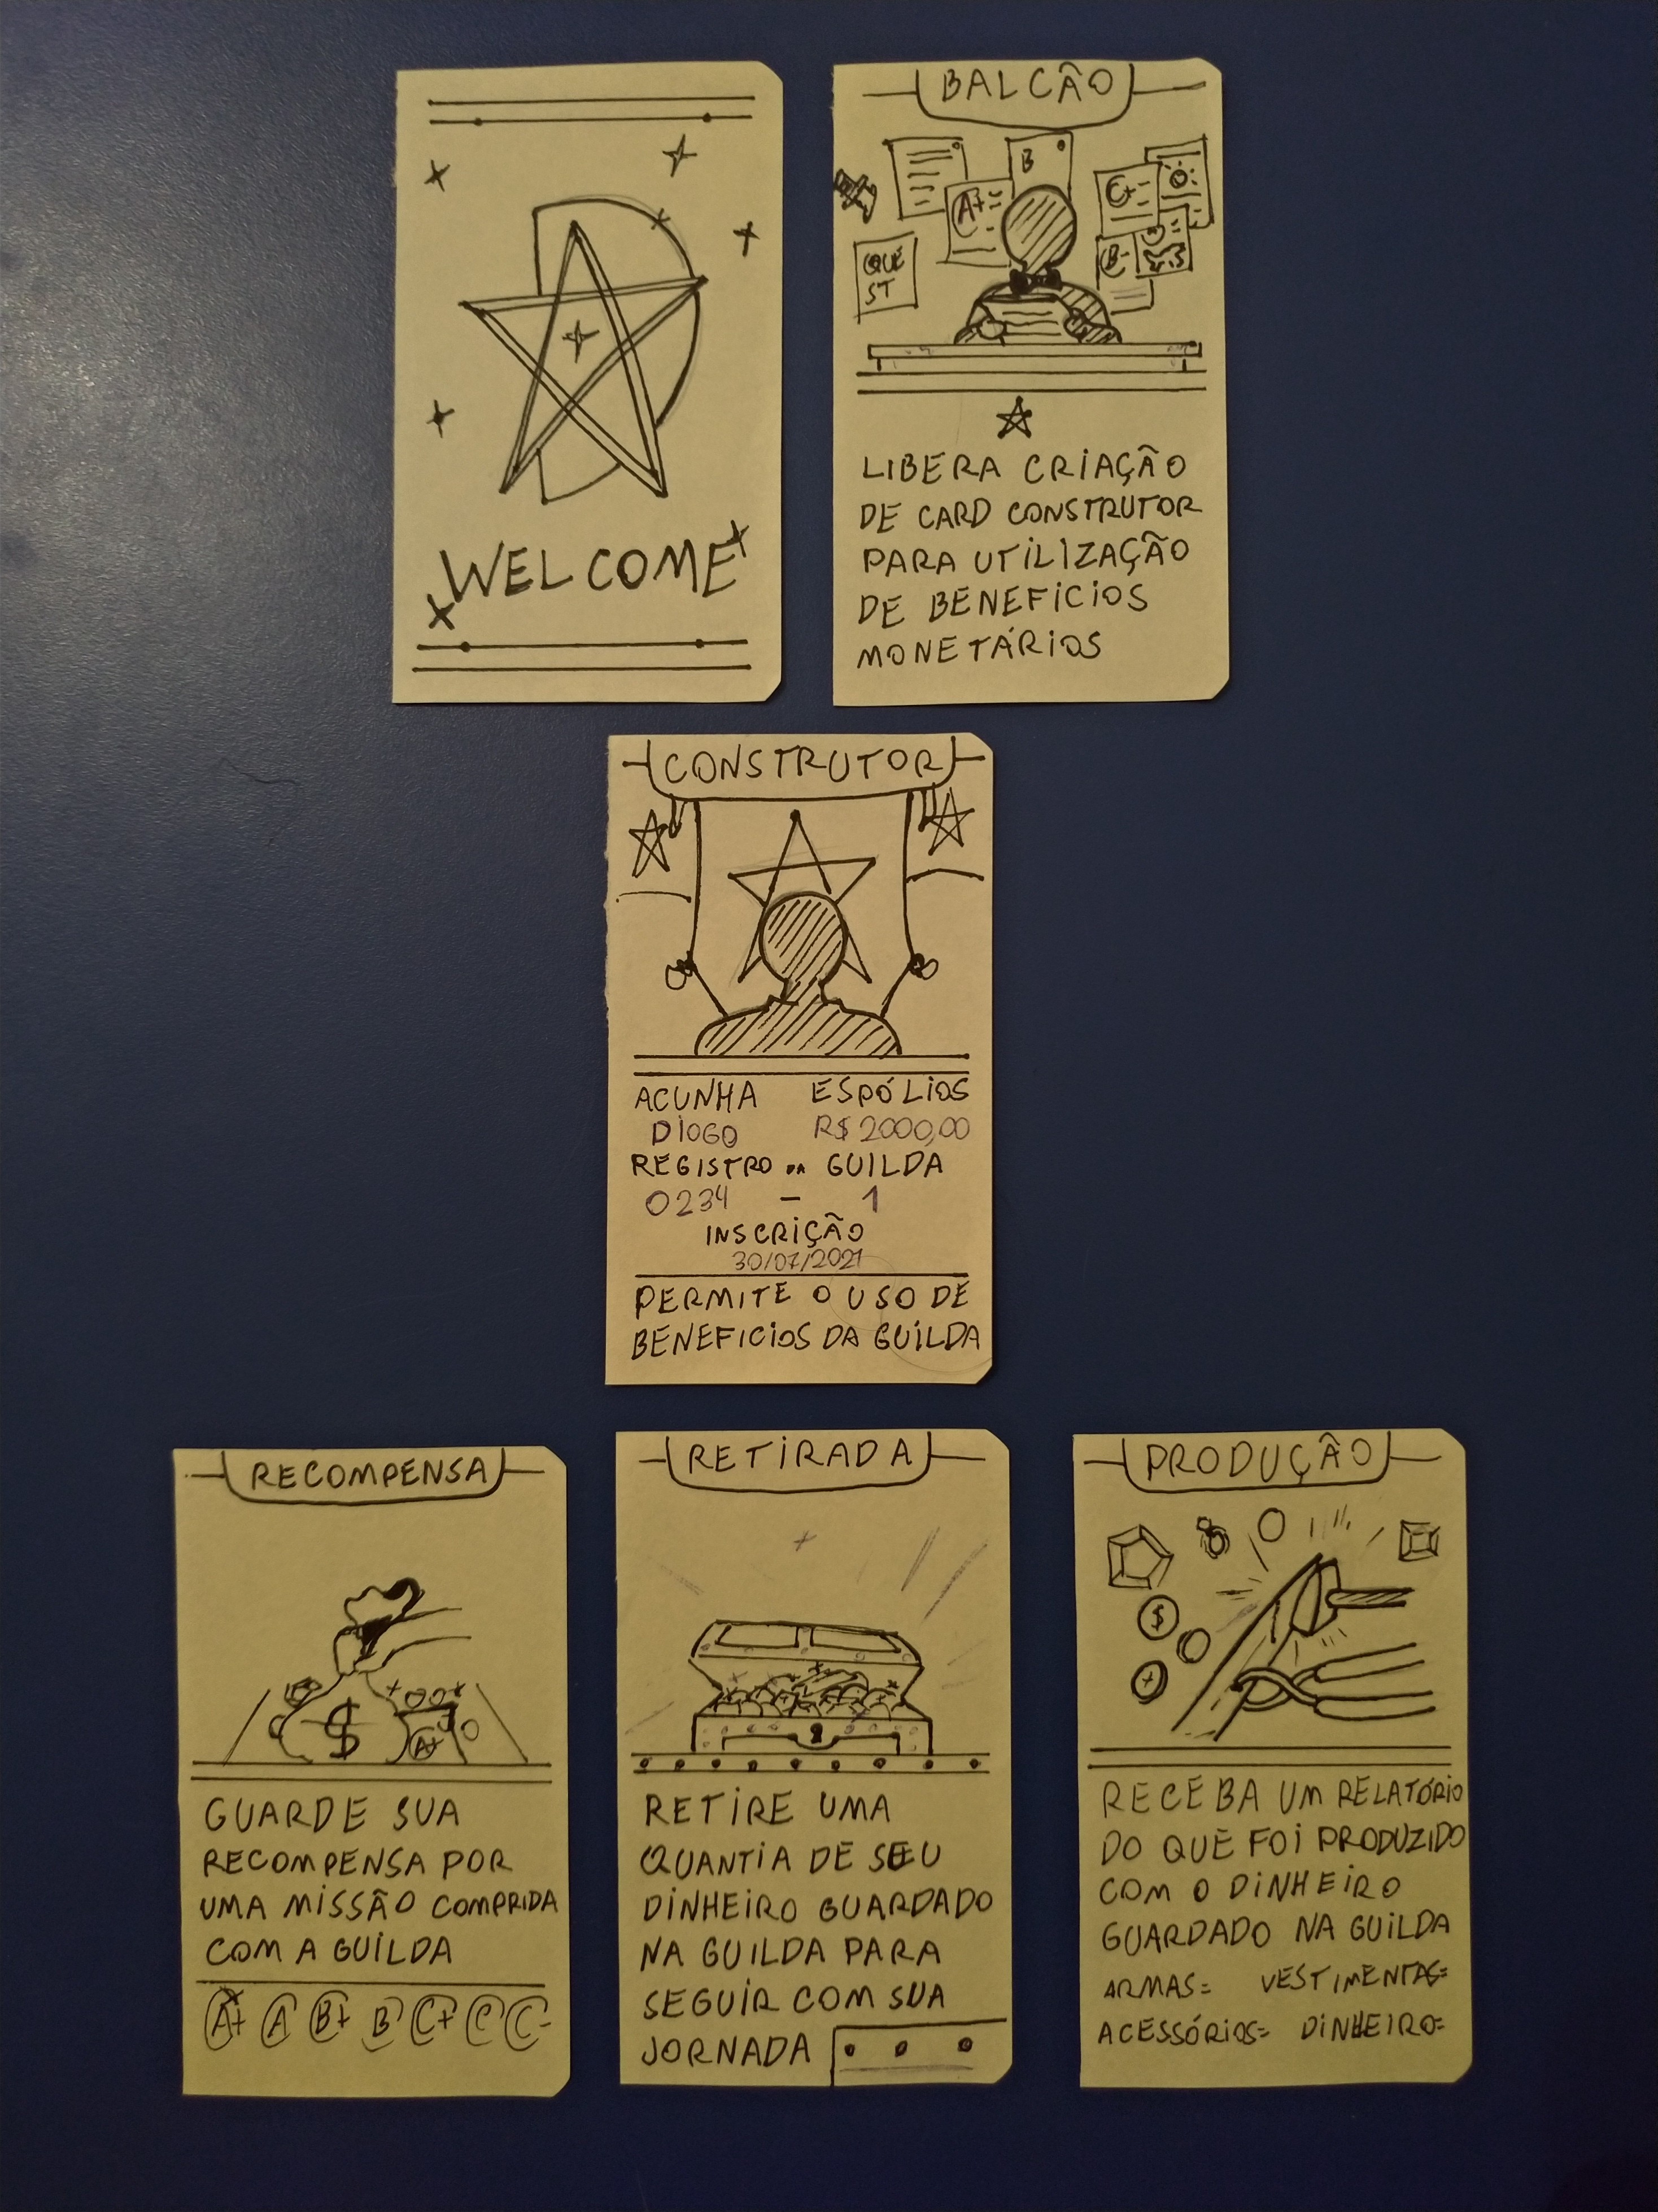 WELCOME
BALCÃO
B
A+
C+
QUE
ST
B-
LIBERA CRIAÇÃO
DE CARD CONSTRUTOR
PARA UTILIZAÇÃO
DE BENEFÍCIOS
MONETÁRIOS
CONSTRUTOR
ACUNHA ESPÓLIOS
DIOGO R$ 2000,00
REGISTRO DA GUILDA
0234 - 1
INSCRIÇÃO
30/07/2021
PERMITE O USO DE
BENEFICIOS DA GUILDA
RECOMPENSA
$
A+
GUARDE SUA
RECOMPENSA POR
UMA MISSÃO COMPRIDA
COM A GUILDA
A+ A B+ B C+ C C-
RETIRADA
RETIRE UMA
QUANTIA DE SEU
DINHEIRO GUARDADO
NA GUILDA PARA
SEGUIR COM SUA
JORNADA
PRODUÇÃO
$
RECEBA UM RELATÓRIO
DO QUE FOI PRODUZIDO
COM O DINHEIRO
GUARDADO NA GUILDA
ARMAS= VESTIMENTAS=
ACESSÓRIOS= DINHEIRO=